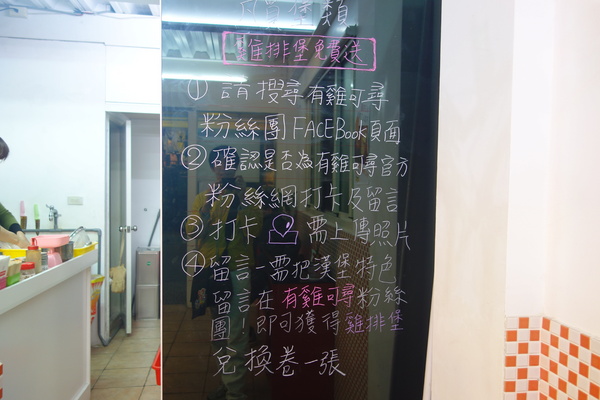 買堡類
雞排堡免費送
① 請搜尋有雞可尋
粉絲團FACEBook頁面
② 確認是否為有雞可尋官方
粉絲網打卡及留言
③ 打卡 需上傳照片
④ 留言一需把漢堡特色
留言在有雞可尋粉絲
團!即可獲得雞排堡
兌換卷一張